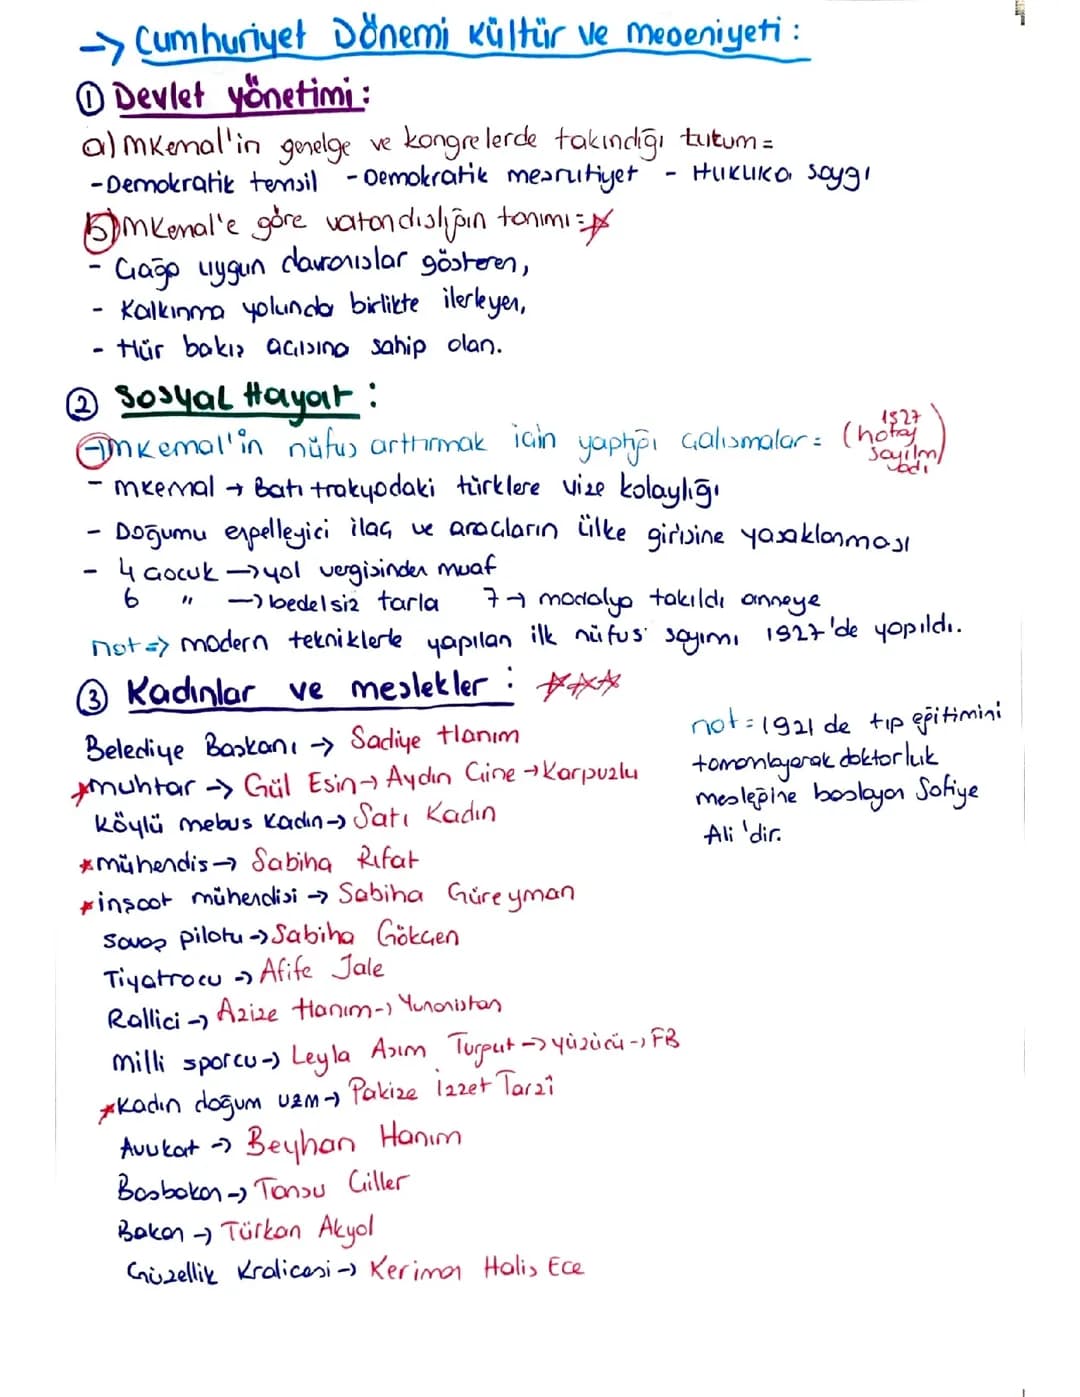 → Cumhuriyet Dönemi Kültür ve medeniyeti :
① Devlet yönetimi :
a) MKemal'in genelge ve kongrelerde takındığı tutum =
- Demokratik temsil - Demokratik meşrutiyet - Hukuka saygı
b) MKemal'e göre vatandışlığın tanımı =
- Çağa uygun davranışlar gösteren,
- Kalkınma yolunda birlikte ilerleyen,
- Hür bakış açısına sahip olan.
② Sosyal Hayat :
→ mkemal'in nüfus arttırmak için yaptığı çalışmalar = (1927 hatay sayılmadı)
- mkemal → Batı trakyadaki türklere vize kolaylığı
- Doğumu engelleyici ilaç ve araçların ülke girişine yasaklanması
- 4 çocuk → yol vergisinden muaf
6 " → bedelsiz tarla 7 → madalya takıldı anneye
not => modern tekniklerle yapılan ilk nüfus sayımı 1927'de yapıldı.
③ Kadınlar ve meslekler :
Belediye Başkanı → Sadiye Hanım
muhtar → Gül Esin → Aydın Çine → Karpuzlu
Köylü mebus Kadın → Satı Kadın
mühendis → Sabiha Rıfat
inşaat mühendisi → Sabiha Güreyman
Savaş pilotu → Sabiha Gökçen
Tiyatrocu → Afife Jale
Rallici → Azize Hanım → Yunanistan
milli sporcu → Leyla Asım Turgut → yüzücü → FB
Kadın doğum uzm → Pakize İzzet Tarzî
Avukat → Beyhan Hanım
Başbakan → Tansu Çiller
Bakan → Türkan Akyol
Güzellik Kraliçesi → Keriman Halis Ece
not = 1921 de tıp eğitimini
tamamlayarak doktorluk
mesleğine başlayan Safiye
Ali 'dir.